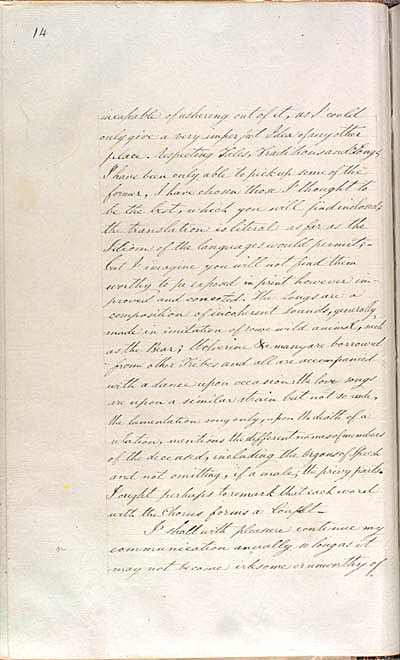 14
incapable of ushering out of it, as I could
only give a very imperfect Idea of any other
place. Respecting Tales, Traditions and Songs,
I have been only able to pick up some of the
former, I have chosen those I thought to
be the best, which you will find inclosed,
the translation is literal as far as the
Idiom of the languages would permit,
but I imagine you will not find them
worthy to be exposed in print however im-
proved and corrected. The Songs are a
composition of incoherent sounds, generally
made in imitation of some wild animal, such
as the Bear, Wolverine &c many are borrowed
from other Tribes and all are accompanied
with a dance upon occasion the love songs
are upon a similar strain but not so rude,
the lamentation song only, upon the death of a
relation, mentions the different names of members
of the deceased, including the Organs of Speech
and not omitting, if a male, the privy parts.
I ought perhaps to remark that each word
with the Chorus forms a Couplet _
I shall with pleasure continue my
communication annually so long as it
may not become irksome or unworthy of